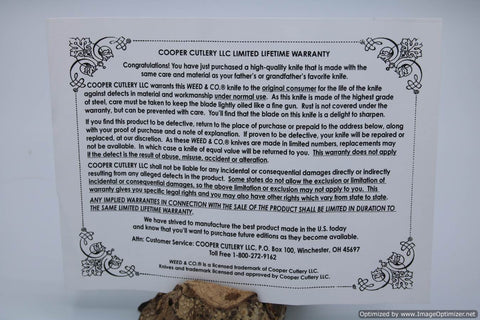 COOPER CUTLERY LLC LIMITED LIFETIME WARRANTY
Congratulations! You have just purchased a high-quality knife that is made with the
same care and material as your father's or grandfather's favorite knife.
COOPER CUTLERY LLC warrants this WEED & CO.® knife to the original consumer for the life of the knife
against defects in material and workmanship under normal use. As this knife is made of the highest grade
of steel, care must be taken to keep the blade lightly oiled like a fine gun. Rust is not covered under the
warranty, but can be prevented with care. You'll find that the blade on this knife is a delight to sharpen.
If you find this product to be defective, return to the place of purchase or prepaid to the address below, along
with your proof of purchase and a note of explanation. If proven to be defective, your knife will be repaired or
replaced, at our discretion. As these WEED & CO.® knives are made in limited numbers, replacements may
not be available. In which case a knife of equal value will be returned to you. This warranty does not apply
if the defect is the result of abuse, misuse, accident or alteration.
COOPER CUTLERY LLC shall not be liable for any incidental or consequential damages directly or indirectly
resulting from any alleged defects in the product. Some states do not allow the exclusion or limitation of
incidental or consequential damages, so the above limitation or exclusion may not apply to you. This
warranty gives you specific legal rights and you may also have other rights which vary from state to state.
ANY IMPLIED WARRANTIES IN CONNECTION WITH THE SALE OF THE PRODUCT SHALL BE LIMITED IN DURATION TO
THE SAME LIMITED LIFETIME WARRANTY.
We have strived to manufacture the best product made in the U.S. today
and know that you'll want to purchase future editions as they become available.
Attn: Customer Service: COOPER CUTLERY LLC, P.O. Box 100, Winchester, OH 45697
Toll Free 1-800-272-9162
WEED & CO.® is a licensed trademark of Cooper Cutlery LLC.
Knives and trademark licensed and approved by Cooper Cutlery LLC.
Optimized by www.ImageOptimizer.net